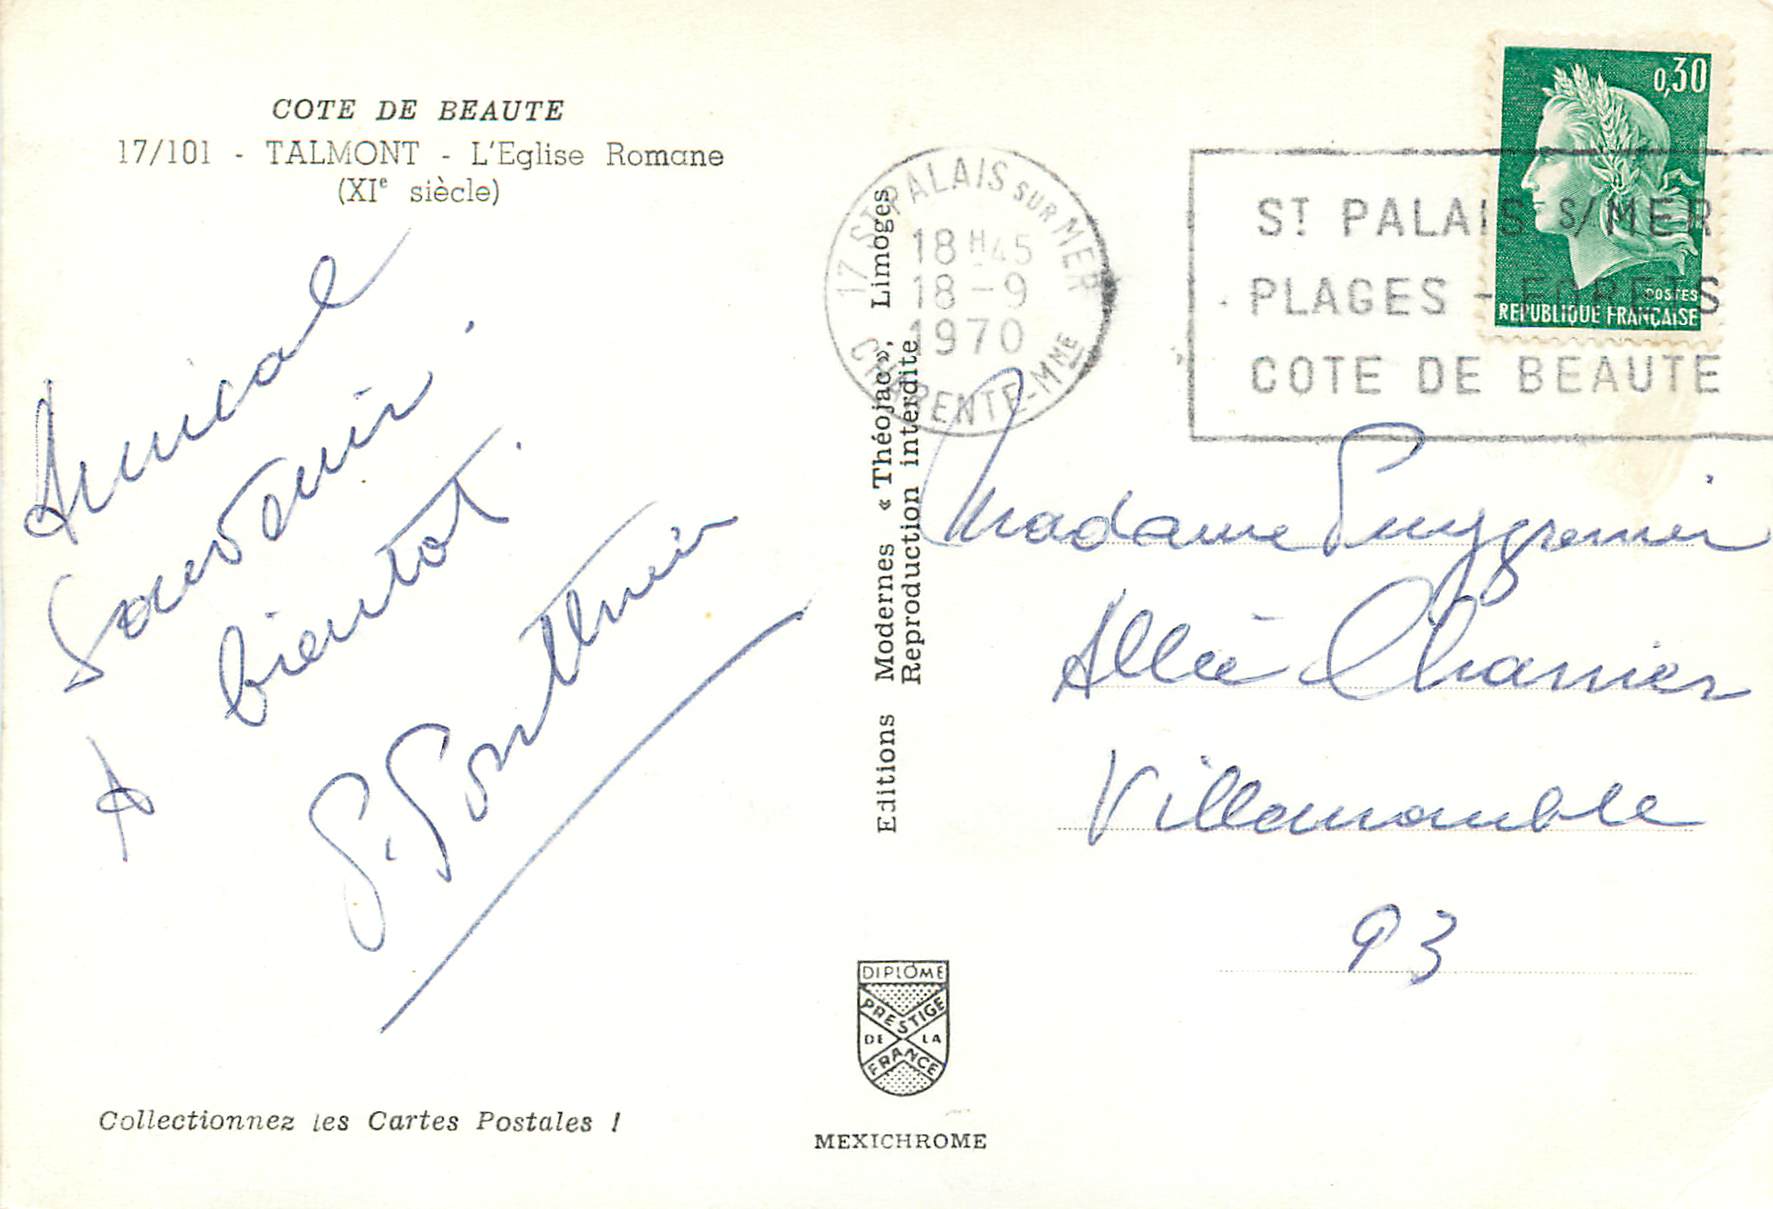 COTE DE BEAUTE
17/101 - TALMONT - L'Eglise Romane
(XIe siècle)
Amical
souvenir.
A bientot.
Collectionnez les Cartes Postales !
Editions Modernes « Théojac », Limoges
Reproduction interdite
DIPLÔME
PRESTIGE
DE LA
FRANCE
MEXICHROME
17 ST PALAIS SUR MER
18H45
18-9
1970
CHARENTE-MME
ST PALAIS S/MER
PLAGES - FORETS
COTE DE BEAUTE
0,30
POSTES
REPUBLIQUE FRANÇAISE
Madame Puygrenier
Allée Charrier
Villemomble
93